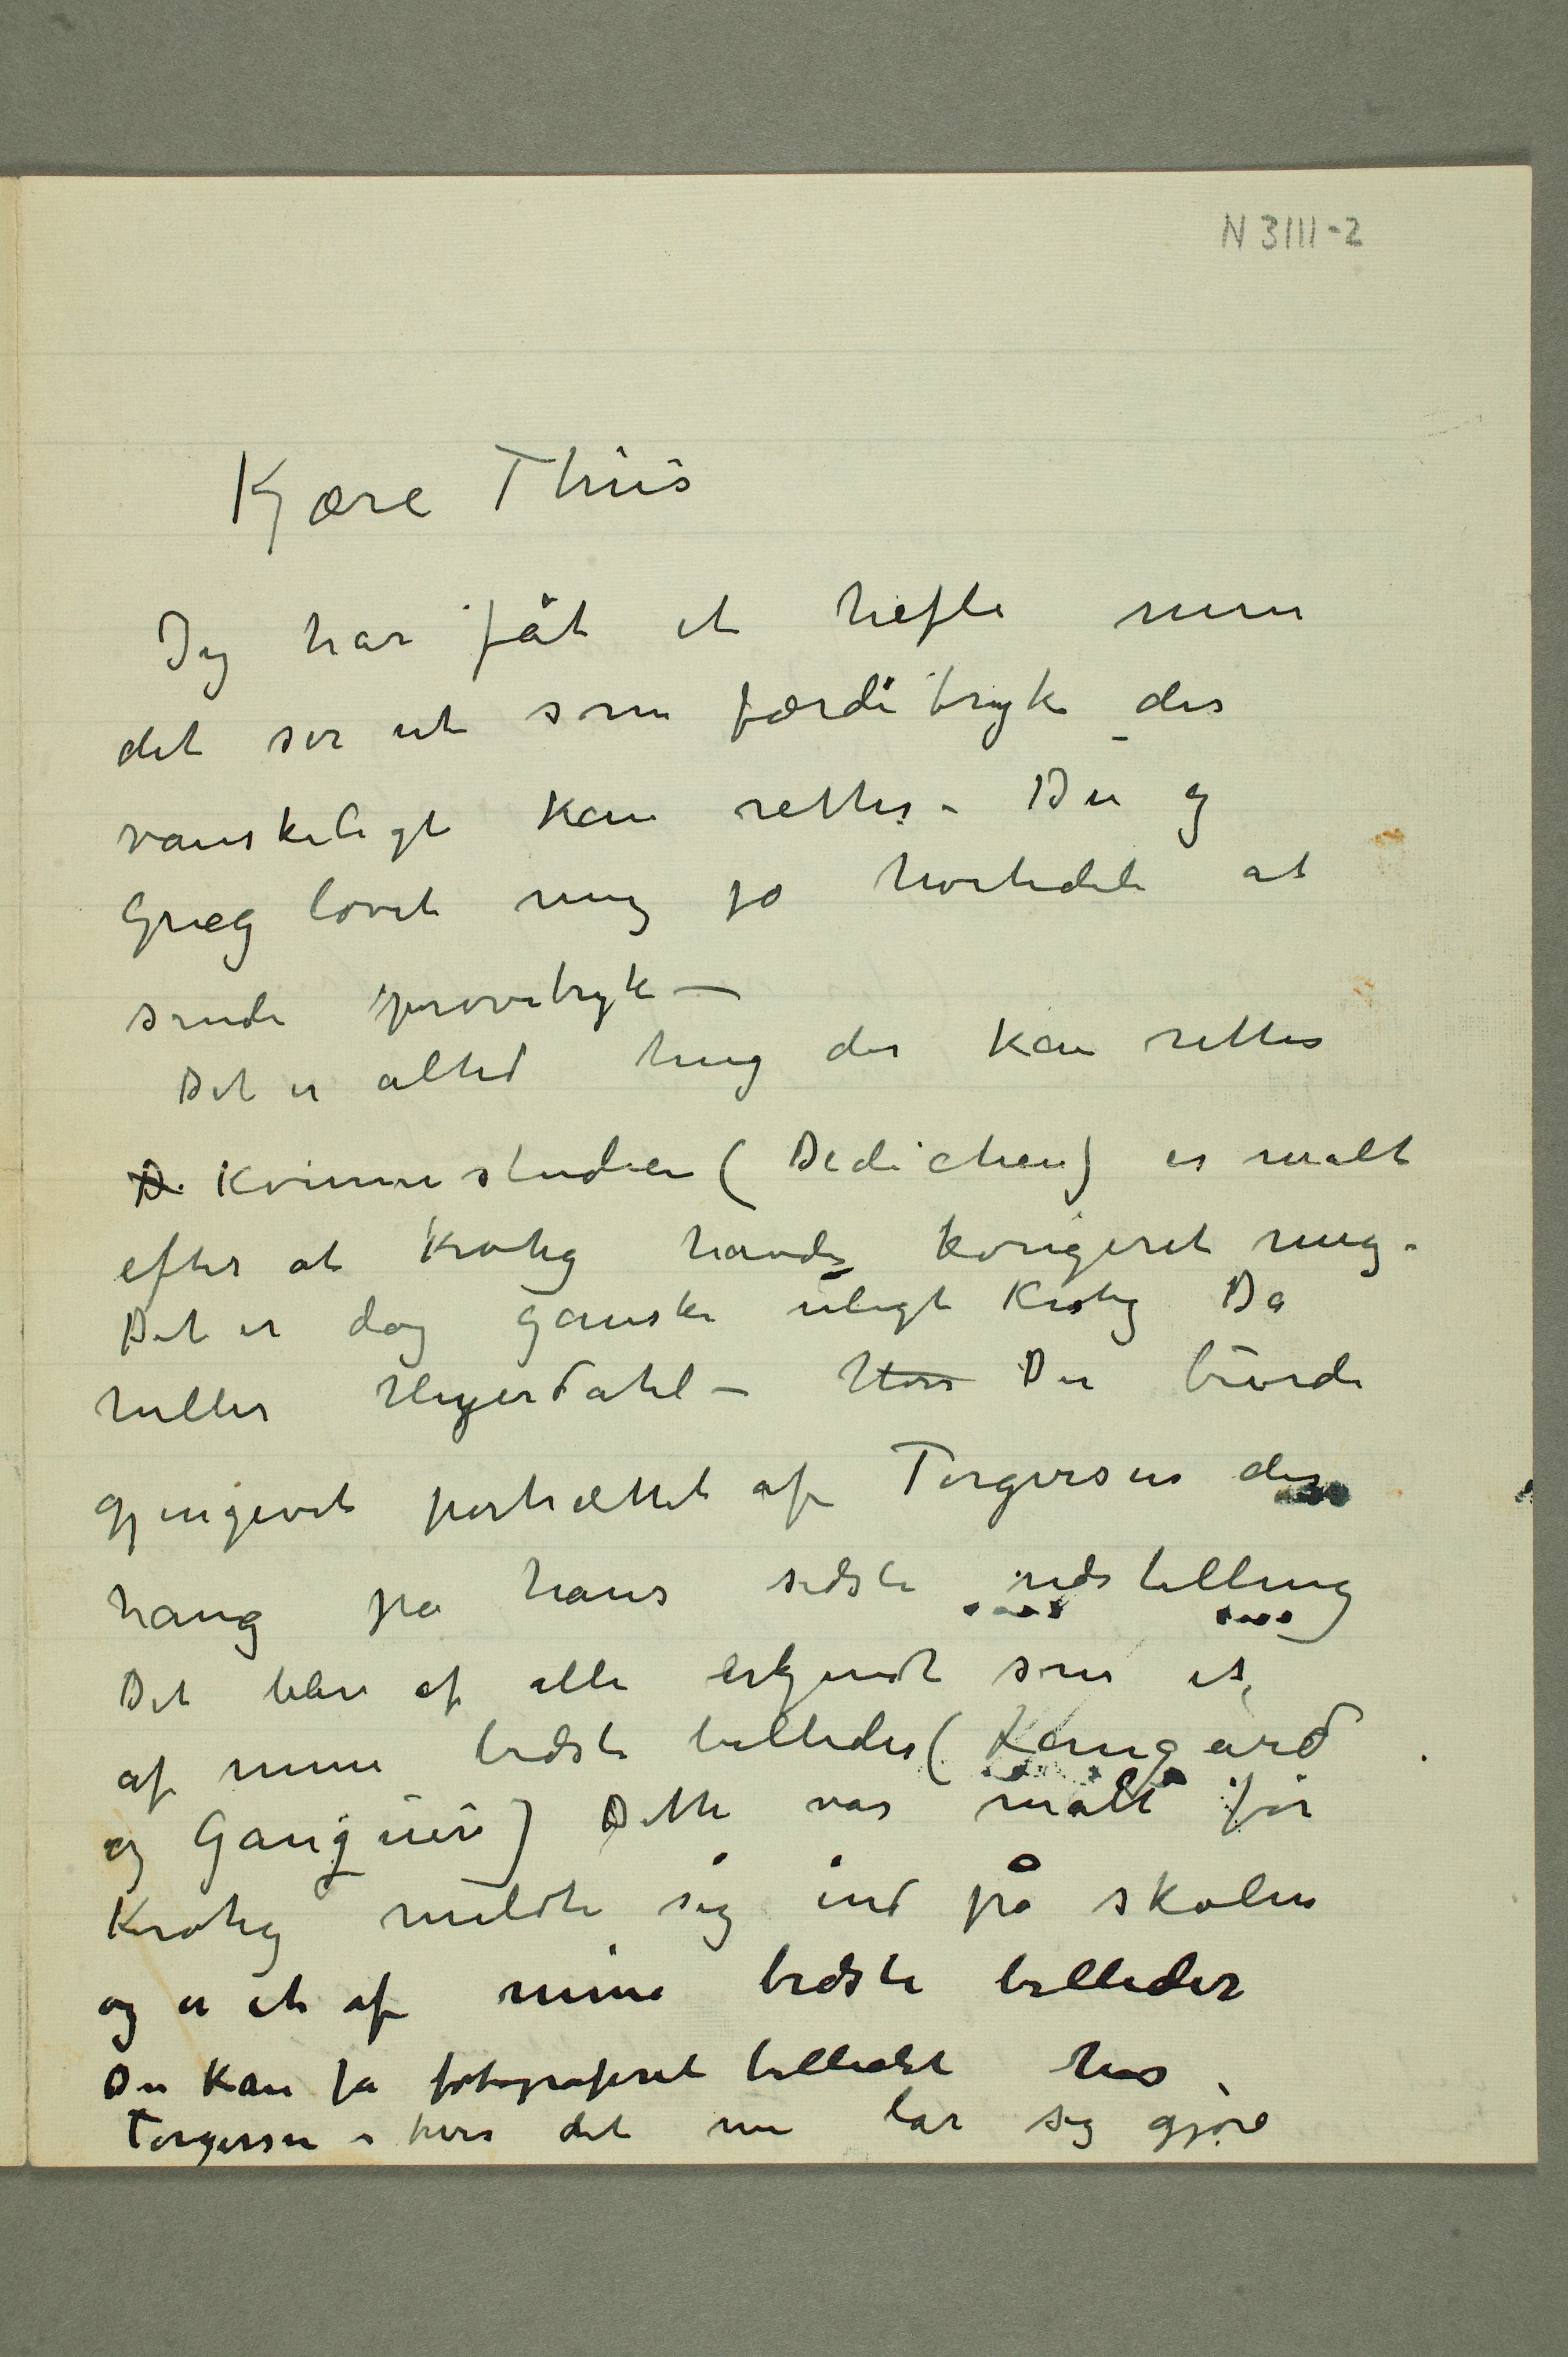 N 3111-2
Kjære Thiis
Jeg har fåt et hefte men
det ser ut som færditryk der
vanskeligt kan rettes – Du og
Grieg lovet mig jo hværtedele at
sende prøvetryk –
Det er altid ting der kan rettes
D Kvinnestudien (Dedichen) er malt
efter at Krohg havde korigeret mig.
Det er dog ganske uligt Krohg Da
heller Heyerdahl – Hvis Du burde
gjengivet portrættet af Torgersen der
hang på hans sidste udstilling
Det blev af alle erkjendt som et
af mine bedste billeder (Langård
og Ganguin) Dette var malt før
Krohg meldte sig ind på skolen
og er et af mine bedste billeder
Du kan få fotograferet billedet hos
Torgersen – hvis det nu lar sig gjøre